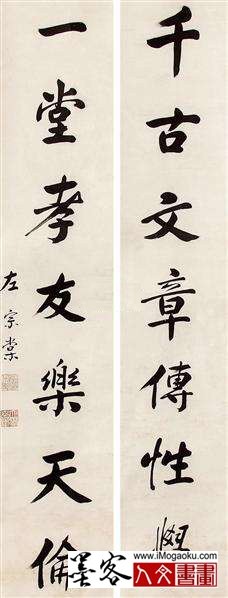 千古文章傳性
一堂孝友樂天倫
左宗棠
墨客
www.iMogaou.com
人文書畫